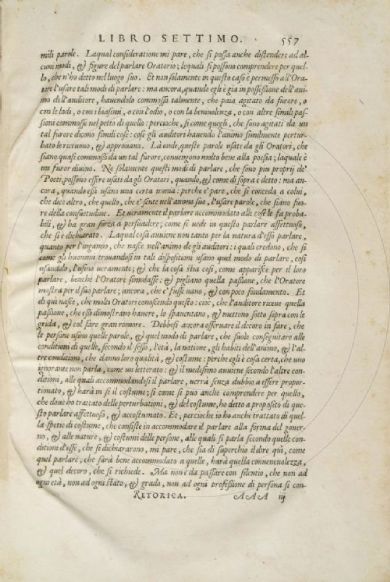 LIBRO SETTIMO. 557
mili parole. Laqual consideratione mi pare, che si possa anche distendere ad al-
cuni modi, & figure del parlare Oratorio; lequali si possono comprendere per quel-
lo, che n'ho detto nel luogo suo. Et non solamente in questo caso è permesso all'Ora-
tore l'usare tali modi di parlare: ma ancora, quando egli è già in possessione dell'ani-
mo dell'auditore, havendolo commosso talmente, che paia agitato da furore, o
con le lodi, o con i biasimi, o con l'odio, o con la benivolenza, o con altre simili pas-
sioni commosse nel petto di quello: percioche, sì come quegli, che sono agitati da un
tal furore dicono simili cose: così gli auditori havendo l'animo similmente pertur-
bato le ricevono, & approvano. Là onde, queste parole usate da gli Oratori, che
siano quasi commossi da un tal furore, convengono molto bene alla poesia; laquale è
un furor divino. Ne solamente questi modi di parlare, che sono più proprij de'
Poeti possono essere usati da gli Oratori, quando, & come di sopra è detto: ma an-
cora, quando essi usano una certa ironia: perche e' pare, che si conceda a colui,
che dice altro, che quello, che e' sente nell'animo suo, l'usare parole, che siano fuo-
re della consuetudine. Et veramente il parlare accommodato alle cose le fa proba-
bili, & ha gran forza a persuadere; come si vede in quello parlare affettuoso,
che si è dichiarato. Laqual cosa aviene non tanto per la natura d'essi parlari,
quanto per l'inganno, che nasce nell'animo de gli auditori: i quali credono, che sì
come gli huomini trovandosi in tali dispositioni usano quel modo di parlare, così
usandolo, l'usino veramente; & che la cosa stia così, come apparisce per il loro
parlare, benche l'Oratore simulasse: & pigliano quella passione, che l'Oratore
mostra per il suo parlare; ancora, che e' fusse vano, & con poco fondamento. Et
di qui nasce, che molti Oratori conoscendo questo: cioè, che l'auditore riceve quella
passione, che essi dimostrano havere, lo spaventano, & mettono sotto sopra con le
grida, & col fare gran romore. Debbesi ancora osservare il decoro in fare, che
le persone usino quelle parole, & quei modi di parlare, che suole conseguitare alle
conditioni di quelle, secondo il sesso, l'età, la natione, gli habiti dell'animo, & l'al-
tre conditioni, che danno loro qualità, & costume: perche egli è cosa certa, che uno
ignorante non parla, come un letterato: & il medesimo aviene secondo l'altre con-
ditioni, alle quali accommodandosi il parlare, verrà senza dubbio a essere propor-
tionato, & harà in sè il costume; sì come si può anche comprendere per quello,
che dove ho trattato delle perturbationi, & del costume, ho detto a proposito di que-
sto parlare affettuoso, & accostumato. Et, percioche io ho anche trattato di quel-
la spetie di costume, che consiste in accommodare il parlare alla forma del gover-
no, & alle nature, & costumi delle persone, alle quali si parla secondo quelle con-
ditioni d'esse, che si dichiararono, mi pare, che sia di superchio il dire qui, come
quel parlare, che sarà bene accommodato a quelle, harà quella convenevolezza,
& quel decoro, che si richiede. Ma non è da passare con silentio, che non ad
ogni età, non ad ogni stato, & grado, non ad ogni professione di persona si con-
RETORICA. AAA iij